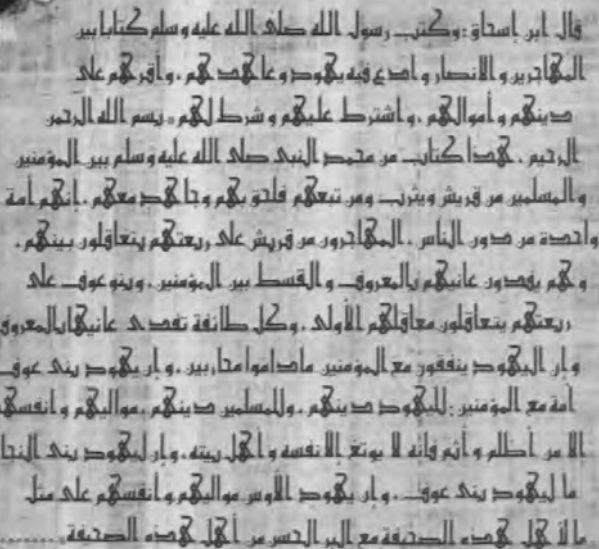 قال ابن إسحاق : وكتب رسول الله صلى الله عليه وسلم كتابا بين
المهاجرين و الانصار و ادع فيه يهود و عاهدهم ، وأقرهم على
دينهم و أموالهم ، و اشترط عليهم و شرط لهم ، بسم الله الرحمن
الرحيم ، هذا كتاب من محمد النبى صلى الله عليه و سلم بين المؤمنين
والمسلمين من قريش ويثرب ومن تبعهم فلحق بهم وجاهد معهم ، إنهم أمة
واحدة من دون الناس ، المهاجرون من قريش على ربعتهم يتعاقلون بينهم ،
و هم يفدون عانيهم بالمعروف و القسط بين المؤمنين ، وبنو عوف على
ربعتهم يتعاقلون معاقلهم الأولى ، وكل طائفة تفدى عانيها بالمعروف
و إن اليهود ينفقون مع المؤمنين ماداموا محاربين ، و إن يهود بنى عوف
أمة مع المؤمنين : لليهود دينهم ، وللمسلمين دينهم ، مواليهم و انفسهم
إلا من أظلم و أثم فإنه لا يوتغ إلا نفسه و أهل بيته ، وإن ليهود بنى النجا
ما ليهود بنى عوف ، و إن يهود الأوس مواليهم و أنفسهم على مثل
ما لأهل هذه الصحيفة مع البر الحسن من أهل هذه الصحيفة ........